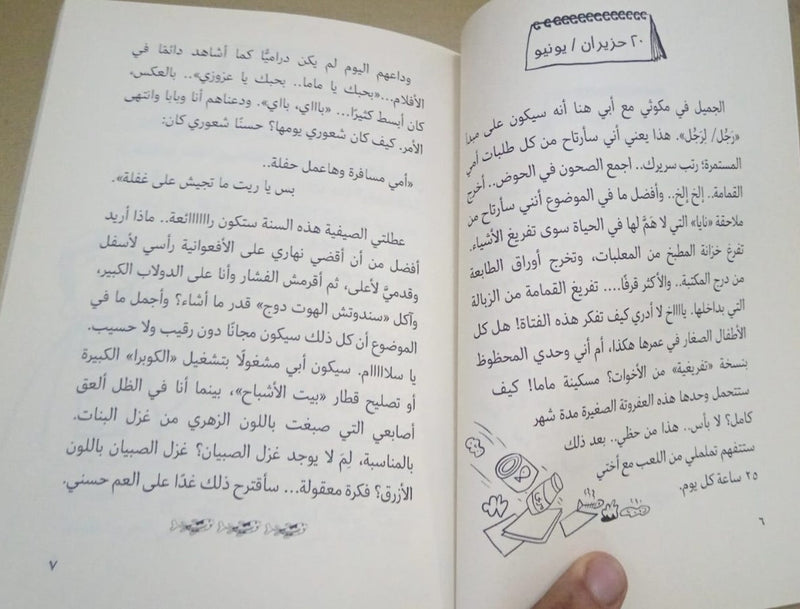 ٢٠ حزيران / يونيو
الجميل في مكوثي مع أبي هنا أنه سيكون على مبدأ
«رَجُل/ لِرَجُل». هذا يعني أني سأرتاح من كل طلبات أمي
المستمرة؛ رتب سريرك.. أجمع الصحون في الحوض.. أخرج
القمامة.. إلخ إلخ.. وأفضل ما في الموضوع أنني سأرتاح من
ملاحقة «نايا» التي لا هَمَّ لها في الحياة سوى تفريغ الأشياء.
تفرغ خزانة المطبخ من المعلبات، وتخرج أوراق الطابعة
من درج المكتبة.. والأكثر قرفًا.... تفريغ القمامة من الزبالة
التي بداخلها. ياااخ لا أدري كيف تفكر هذه الفتاة! هل كل
الأطفال الصغار في عمرها هكذا، أم أني وحدي المحظوظ
بنسخة «تفريغية» من الأخوات؟ مسكينة ماما! كيف
ستتحمل وحدها هذه العفروتة الصغيرة مدة شهر
كامل؟ لا بأس.. هذا من حظي.. بعد ذلك
ستتفهم تململي من اللعب مع أختي
٢٥ ساعة كل يوم.
٦
وداعهم اليوم لم يكن دراميًّا كما أشاهد دائمًا في
الأفلام...«بحبك يا ماما.. بحبك يا عزوزي».. بالعكس،
كان أبسط كثيرًا... «باااي، بااي». ودعناهم أنا وبابا وانتهى
الأمر. كيف كان شعوري يومها؟ حسنًا شعوري كان:
«أمي مسافرة وهاعمل حفلة..
بس يا ريت ما تجيش على غفلة».
عطلتي الصيفية هذه السنة ستكون راااااائعة.. ماذا أريد
أفضل من أن أقضي نهاري على الأفعوانية رأسي لأسفل
وقدميَّ لأعلى، ثم أقرمش الفشار وأنا على الدولاب الكبير،
وآكل «سندوتش الهوت دوج» قدر ما أشاء؟ وأجمل ما في
الموضوع أن كل ذلك سيكون مجانًا دون رقيب ولا حسيب.
يا سلااااام. سيكون أبي مشغولًا بتشغيل «الكوبرا» الكبيرة
أو تصليح قطار «بيت الأشباح»، بينما أنا في الظل ألعق
أصابعي التي صبغت باللون الزهري من غزل البنات.
بالمناسبة، لِمَ لا يوجد غزل الصبيان؟ غزل الصبيان باللون
الأزرق؟ فكرة معقولة... سأقترح ذلك غدًا على العم حسني.
٧